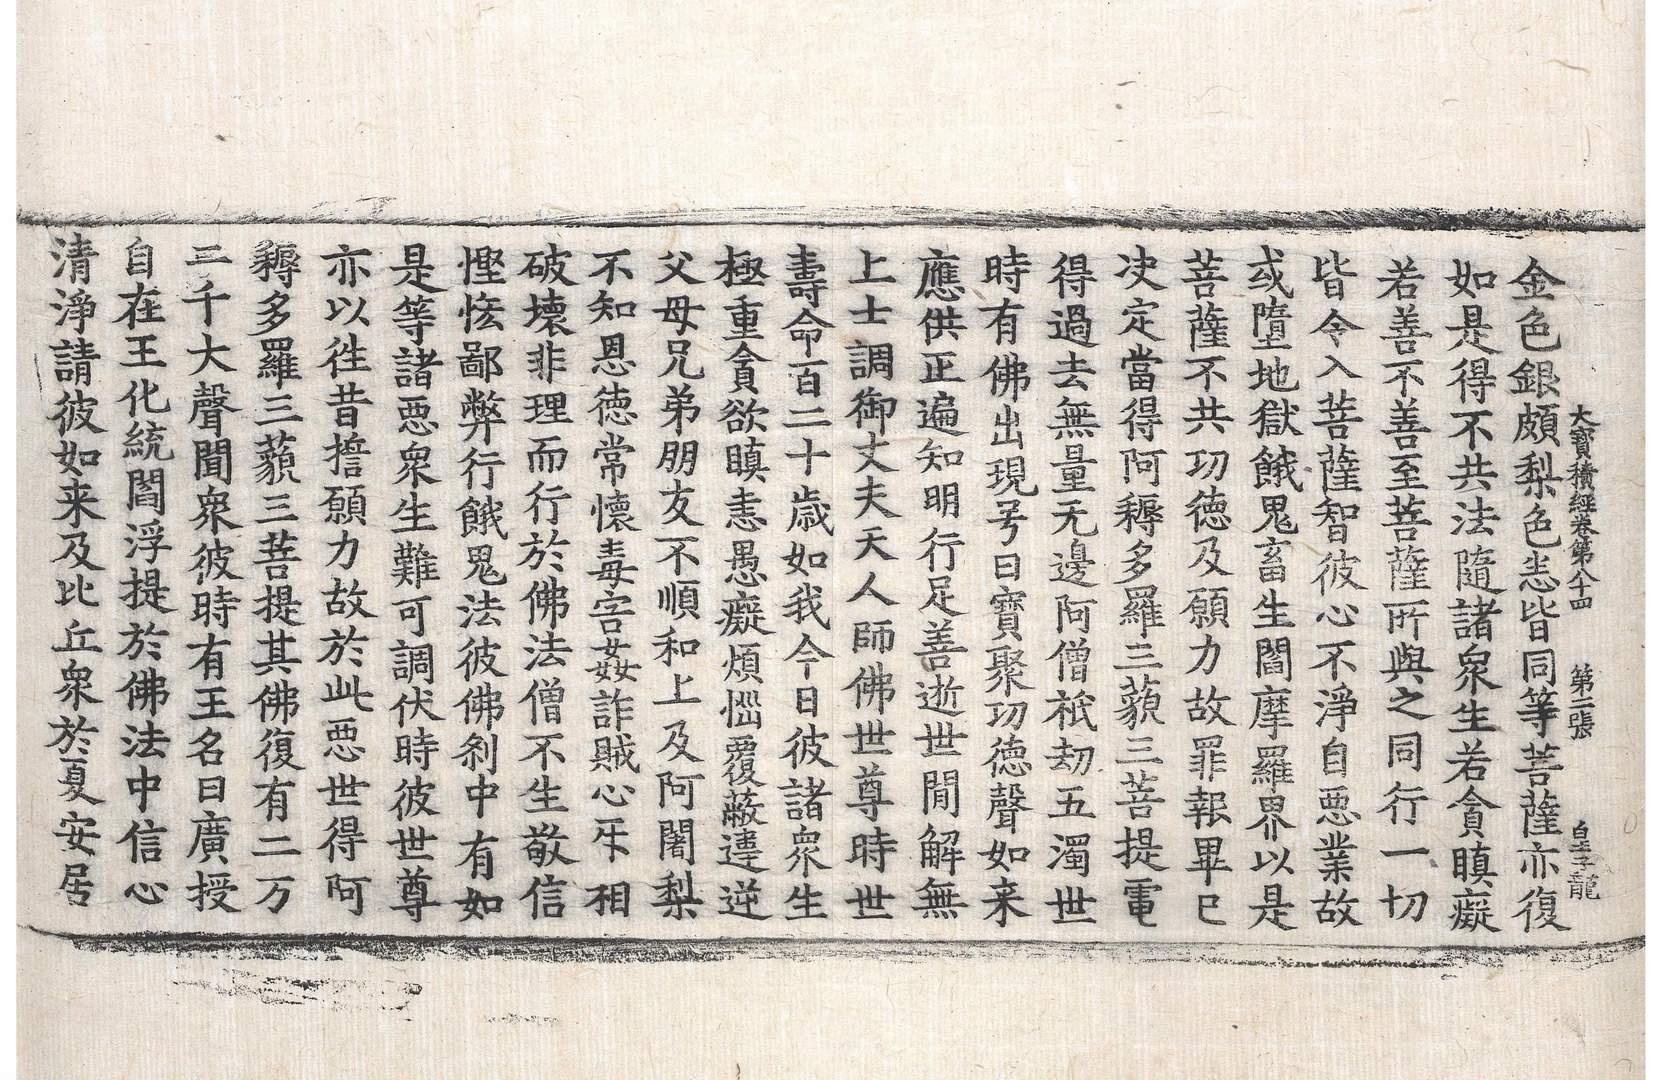 大寳積經卷第八十四　第二張　皇　龍
金色銀頗梨色悉皆同等菩薩亦復
如是得不共法隨諸衆生若貪瞋癡
若善不善至菩薩所與之同行一切
皆令入菩薩智彼心不淨自惡業故
或墮地獄餓鬼畜生閻摩羅界以是
菩薩不共功德及願力故罪報畢已
决定當得阿耨多羅三藐三菩提電
得過去無量无邊阿僧祇劫五濁世
時有佛出現号曰寶聚功德聲如来
應供正遍知明行足善逝世間解無
上士調御丈夫天人師佛世尊時世
壽命百二十歳如我今日彼諸衆生
極重貪欲瞋恚愚癡煩惱覆蔽違逆
父母兄弟朋友不順和上及阿闍梨
不知恩德常懷毒害姦詐賊心牙相
破壞非理而行於佛法僧不生敬信
慳悋鄙弊行餓鬼法彼佛刹中有如
是等諸惡衆生難可調伏時彼世尊
亦以往昔擔願力故於此惡世得阿
耨多羅三藐三菩提其佛復有二万
三千大聲聞衆彼時有王名曰廣授
自在王化統閻浮提於佛法中信心
清淨請彼如来及比丘衆於夏安居